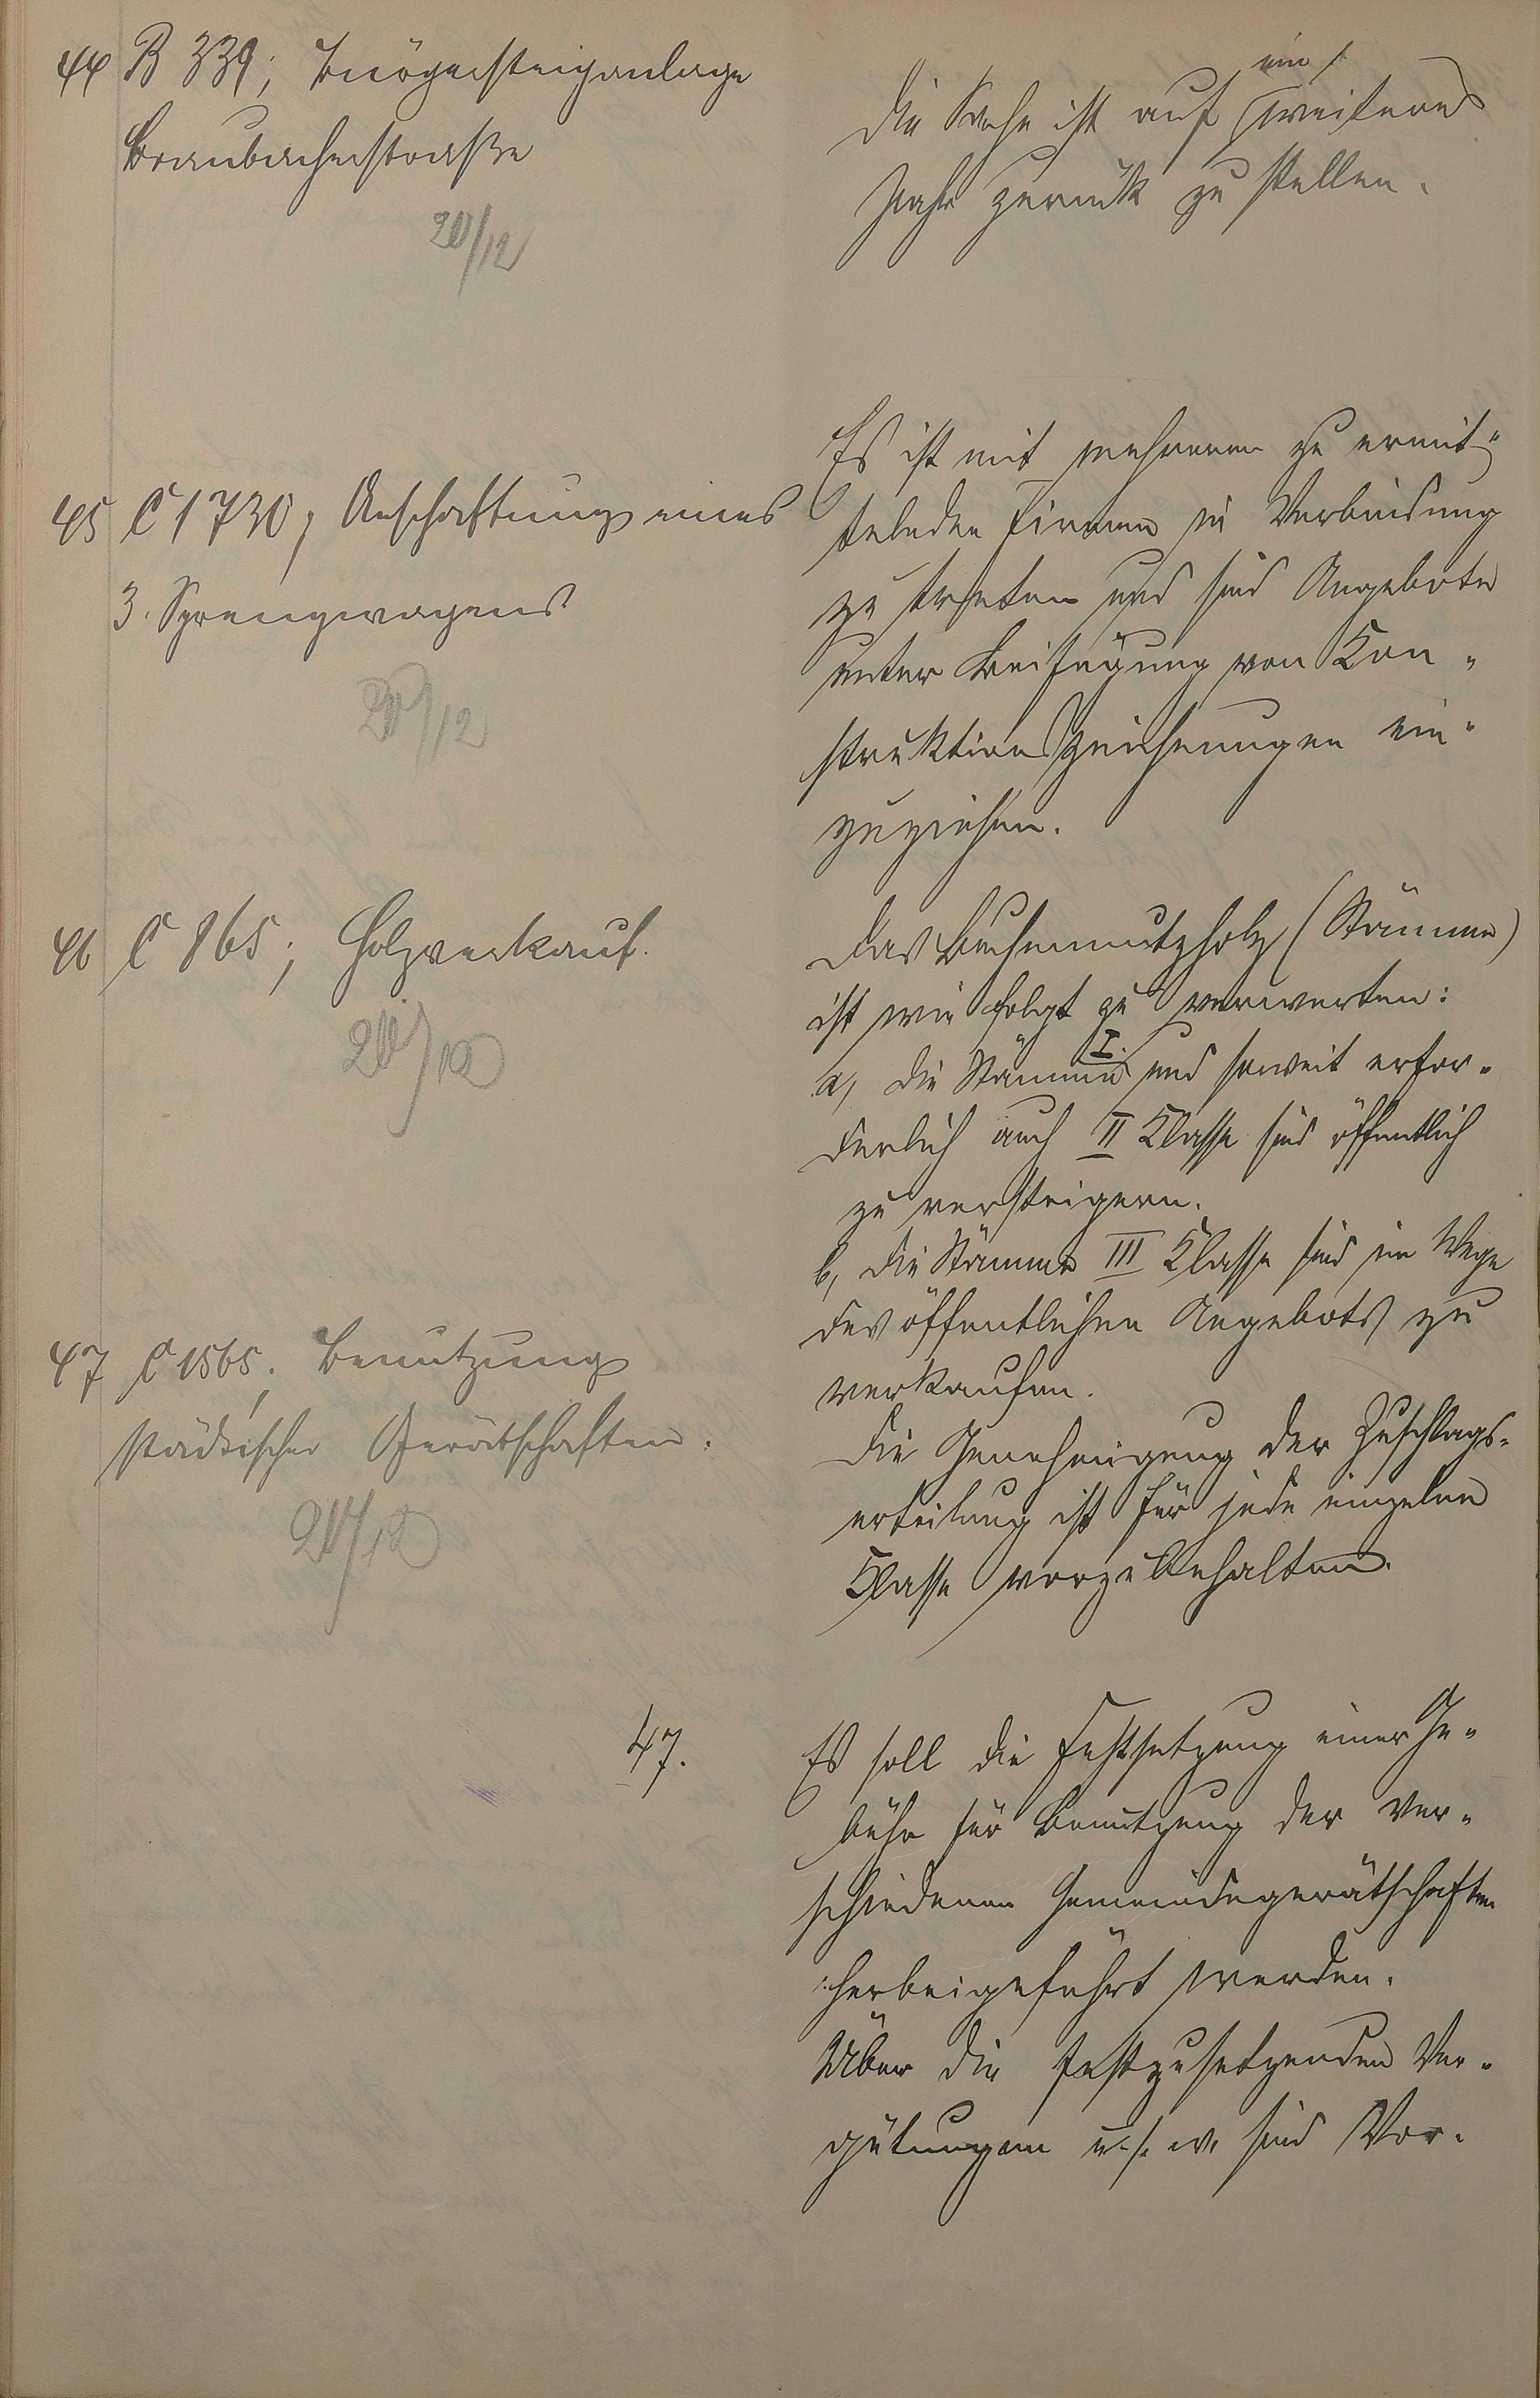 44 B 339; Bürgersteiganlage
Braubacherstraße
20/12
ein
Die Sache ist auf weiteres
Jahr zurück zu stellen.
45 C 1730; Anschaffung eines
3. Sprengwagens
20/12
Es ist mit mehreren zu ermit-
telnden Firmen in Verbindung
zu treten und sind Angebote
unter Beifügung von Kon-
struktionszeichnungen ein-
zuziehen.
46 C 865; Holzverkauf.
20/12
Das Buchennutzholz (Stämme)
ist wie folgt zu verwerten:
a, die Stämme I. und soweit erfor-
derlich auch II Klasse sind öffentlich
zu versteigern.
b, die Stämme III Klasse sind im Wege
des öffentlichen Angebots zu
verkaufen.
Die Genehmigung der Zuschlags-
erteilung ist für jede einzelne
Klasse vorzubehalten.
47 C 1565; Benutzung
städtischer Gerätschaften.
20/12
47.
Es soll die Festsetzung einer Ge-
bühr für Benutzung der ver-
schiedenen Gemeindegerätschaften
herbeigeführt werden.
Über die festzusetzenden Ver-
gütungen u. s. w. sind Vor-